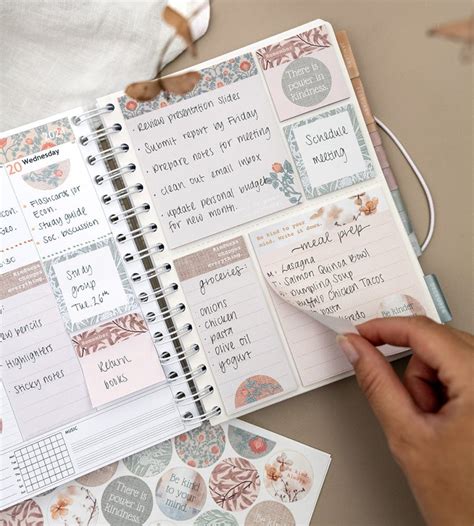 20 Wednesday
• Flashcards for
Econ.
• Study guide
• Soc. discussion
Study
group
Tue 26th
new pencils
Highlighters
sticky notes
Return
books
MUSIC
• Review presentation slides
• Submit report by Friday
• Prepare notes for meeting
• clean out email inbox
• update personal budget
for new month.
There is
power in
kindness.
Schedule
meeting
Kindness
changes
everything.
groceries:
• onions
• chicken
• pasta
• olive oil
• yogurt
Be kind to your
mind. Write it down.
meal prep
M. Lasagna
T. Salmon Quinoa Bowl
Dumpling Soup
Buffalo Chicken Tacos
Pasta
Be kind
There is
power in
kindness.
Be kind
to your
mind.